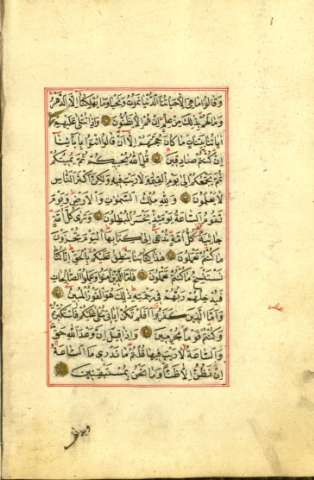 وَقَالُوا مَا هِيَ اِلَّا حَيَاتُنَا الدُّنْيَا نَمُوتُ وَنَحْيَا وَمَا يُهْلِكُنَا اِلَّا الدَّهْرُ
وَمَا لَهُمْ بِذٰلِكَ مِنْ عِلْمٍ اِنْ هُمْ اِلَّا يَظُنُّونَ وَاِذَا تُتْلٰى عَلَيْهِمْ
اٰيَاتُنَا بَيِّنَاتٍ مَا كَانَ حُجَّتَهُمْ اِلَّا اَنْ قَالُوا ائْتُوا بِاٰبَائِنَا
اِنْ كُنْتُمْ صَادِقِينَ قُلِ اللّٰهُ يُحْيِيكُمْ ثُمَّ يُمِيتُكُمْ
ثُمَّ يَجْمَعُكُمْ اِلٰى يَوْمِ الْقِيٰمَةِ لَا رَيْبَ فِيهِ وَلٰكِنَّ اَكْثَرَ النَّاسِ
لَا يَعْلَمُونَ وَلِلّٰهِ مُلْكُ السَّمٰوَاتِ وَالْاَرْضِ وَيَوْمَ
تَقُومُ السَّاعَةُ يَوْمَئِذٍ يَخْسَرُ الْمُبْطِلُونَ وَتَرٰى كُلَّ اُمَّةٍ
جَاثِيَةً كُلُّ اُمَّةٍ تُدْعٰى اِلٰى كِتَابِهَا الْيَوْمَ تُجْزَوْنَ
مَا كُنْتُمْ تَعْمَلُونَ هٰذَا كِتَابُنَا يَنْطِقُ عَلَيْكُمْ بِالْحَقِّ اِنَّا كُنَّا
نَسْتَنْسِخُ مَا كُنْتُمْ تَعْمَلُونَ فَاَمَّا الَّذِينَ اٰمَنُوا وَعَمِلُوا الصَّالِحَاتِ
فَيُدْخِلُهُمْ رَبُّهُمْ فِي رَحْمَتِهِ ذٰلِكَ هُوَ الْفَوْزُ الْمُبِينُ
وَاَمَّا الَّذِينَ كَفَرُوا اَفَلَمْ تَكُنْ اٰيَاتِي تُتْلٰى عَلَيْكُمْ فَاسْتَكْبَرْتُمْ
وَكُنْتُمْ قَوْمًا مُجْرِمِينَ وَاِذَا قِيلَ اِنَّ وَعْدَ اللّٰهِ حَقٌّ
وَالسَّاعَةُ لَا رَيْبَ فِيهَا قُلْتُمْ مَا نَدْرِي مَا السَّاعَةُ
اِنْ نَظُنُّ اِلَّا ظَنًّا وَمَا نَحْنُ بِمُسْتَيْقِنِينَ